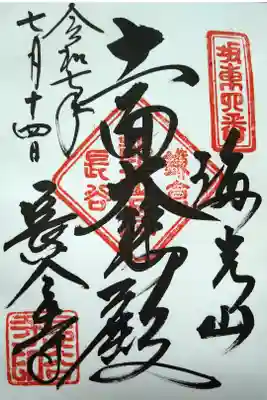 坂東四番
海光山
十一面大悲殿
鎌倉
長谷
令和七年
七月十四日
長谷寺